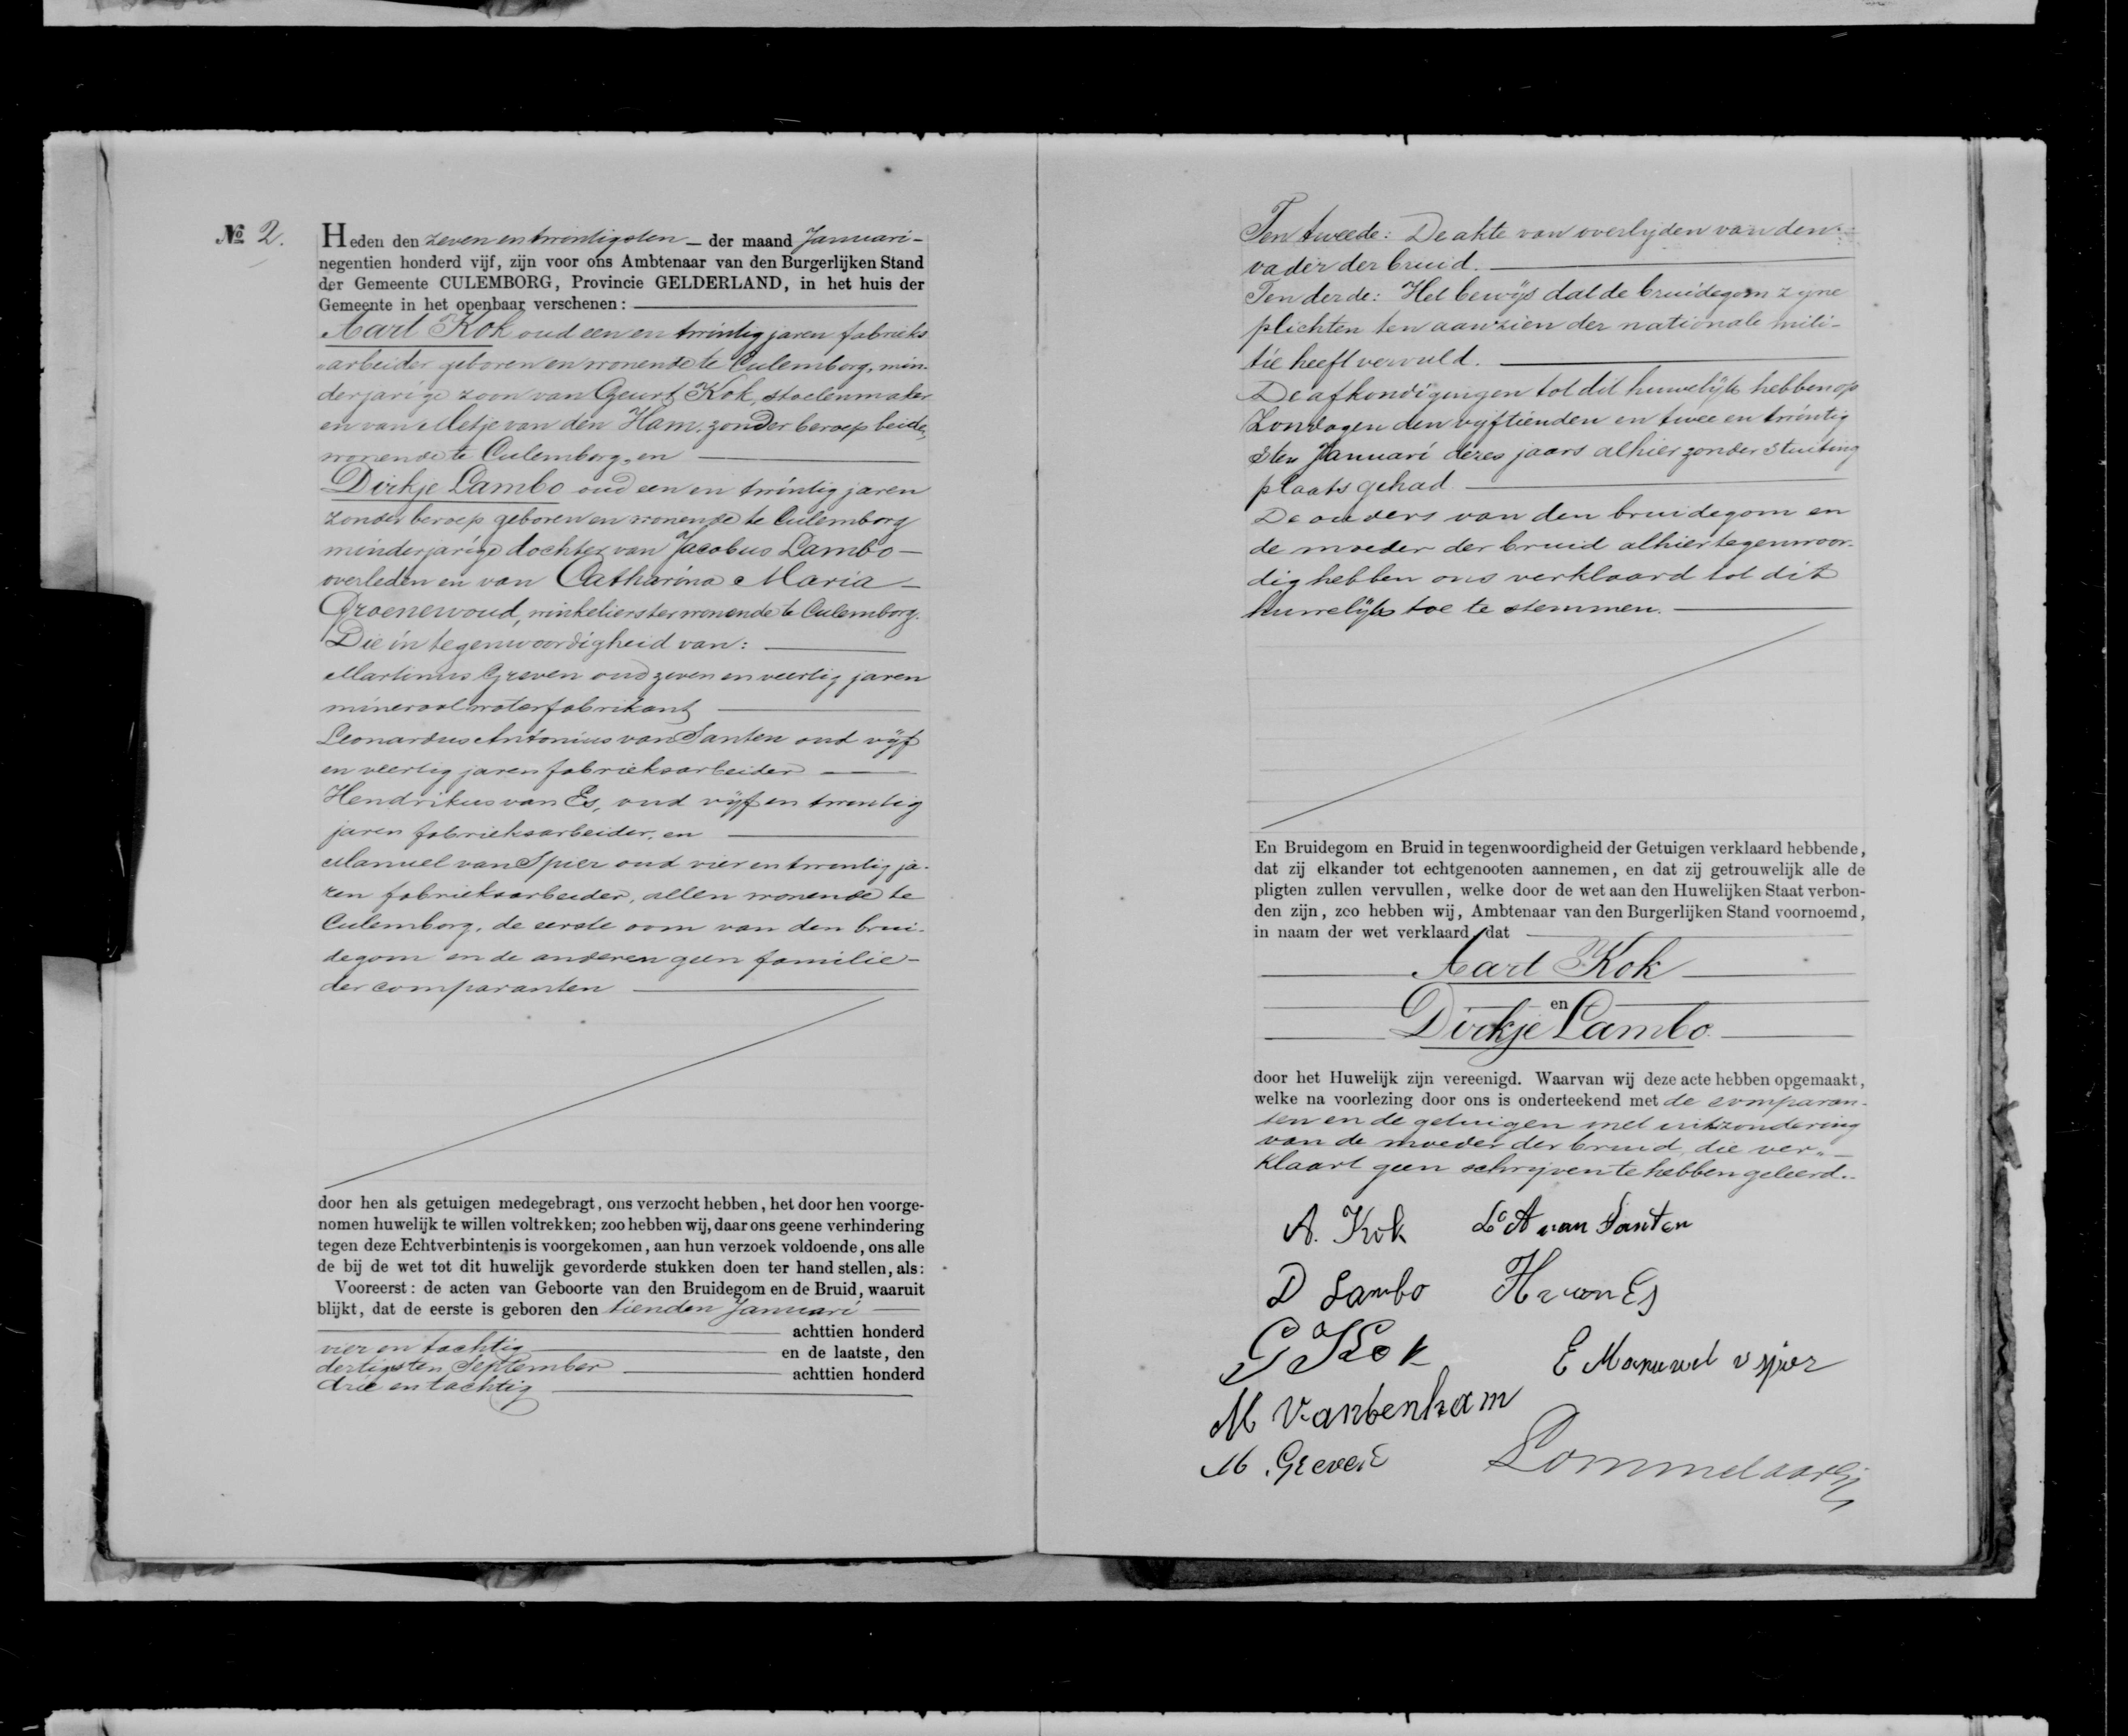 № 2.
Heden den zeven en twintigsten — der maand Januari -
negentien honderd vijf, zijn voor ons Ambtenaar van den Burgerlijken Stand
der Gemeente CULEMBORG, Provincie GELDERLAND, in het huis der
Gemeente in het openbaar verschenen:
Aart Kok oud een en twintig jaren fabrieks
arbeider geboren en wonende te Culemborg, min-
derjarige zoon van Geurt Kok, stoelenmaker
en van Metje van den Ham, zonder beroep beide,
wonende te Culemborg, en
Dirkje Lambo oud een en twintig jaren
zonder beroep geboren en wonende te Culemborg
minderjarige dochter van Jacobus Lambo —
overleden en van Catharina Maria —
Groenewoud, winkelierster wonende te Culemborg.
Die in tegenwoordigheid van:
Martinus Greven oud zeven en veertig jaren
mineraalwaterfabrikant
Leonardus Antonius van Santen oud vijf
en veertig jaren fabrieksarbeider
Hendrikus van Es, oud vijf en twintig
jaren fabrieksarbeider, en
Manuel van Spier oud vier en twintig ja-
ren fabrieksarbeider, allen wonende te
Culemborg, de eerste oom van den brui-
degom en de anderen geen familie -
der comparanten
door hen als getuigen medegebragt, ons verzocht hebben, het door hen voorge-
nomen huwelijk te willen voltrekken; zoo hebben wij, daar ons geene verhindering
tegen deze Echtverbintenis is voorgekomen, aan hun verzoek voldoende, ons alle
de bij de wet tot dit huwelijk gevorderde stukken doen ter hand stellen, als:
Vooreerst: de acten van Geboorte van den Bruidegom en de Bruid, waaruit
blijkt, dat de eerste is geboren den tienden Januari
achttien honderd
vier en tachtig en de laatste, den
dertigsten September achttien honderd
drie en tachtig
Ten tweede: De akte van overlijden van den
vader der bruid.
Ten derde: Het bewijs dat de bruidegom zijne
plichten ten aanzien der nationale mili-
tie heeft vervuld.
De afkondigingen tot dit huwelijk hebben op
Zondagen den vijftienden en twee en twintig
sten Januari dezes jaars alhier zonder stuiting
plaats gehad.
De ouders van den bruidegom en
de moeder der bruid alhier tegenwoor-
dig hebben ons verklaard tot dit
huwelijk toe te stemmen.
En Bruidegom en Bruid in tegenwoordigheid der Getuigen verklaard hebbende,
dat zij elkander tot echtgenooten aannemen, en dat zij getrouwelijk alle de
pligten zullen vervullen, welke door de wet aan den Huwelijken Staat verbon-
den zijn, zoo hebben wij, Ambtenaar van den Burgerlijken Stand voornoemd,
in naam der wet verklaard, dat
Aart Kok
en
Dirkje Lambo.
door het Huwelijk zijn vereenigd. Waarvan wij deze acte hebben opgemaakt,
welke na voorlezing door ons is onderteekend met de comparan-
ten en de getuigen met uitzondering
van de moeder der bruid, die ver-
klaart geen schrijven te hebben geleerd.
A. Kok L A van Santen
D Lambo H van Es
G Kok E Manuel v spier
M Vandenham
M. Greven